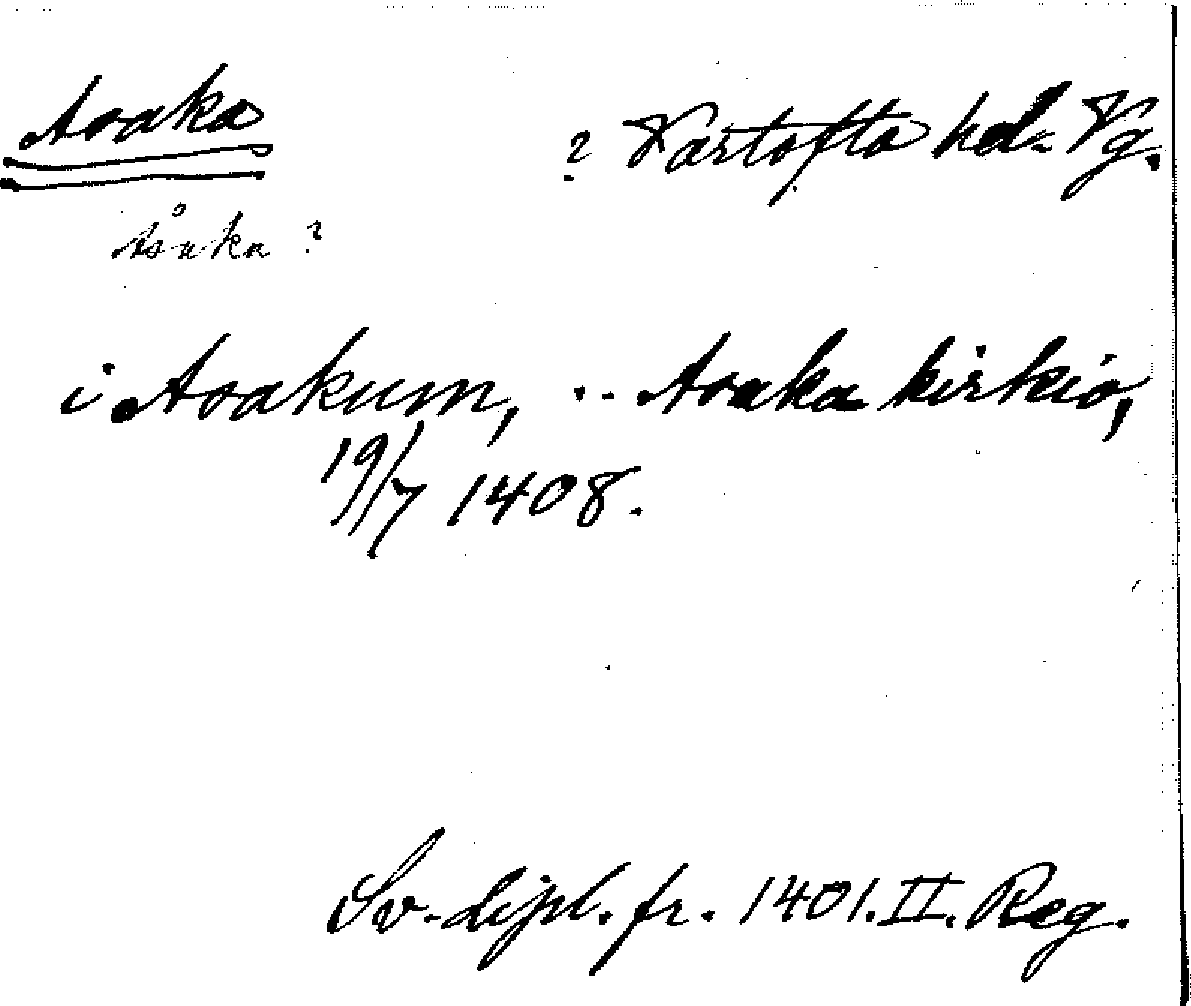 Asaka ? Vartofta hd. Vg.
Asåka ?
i Asakum, .. Asaka kirkio,
19/7 1408.
Sv. dipl. fr. 1401. II. Reg.